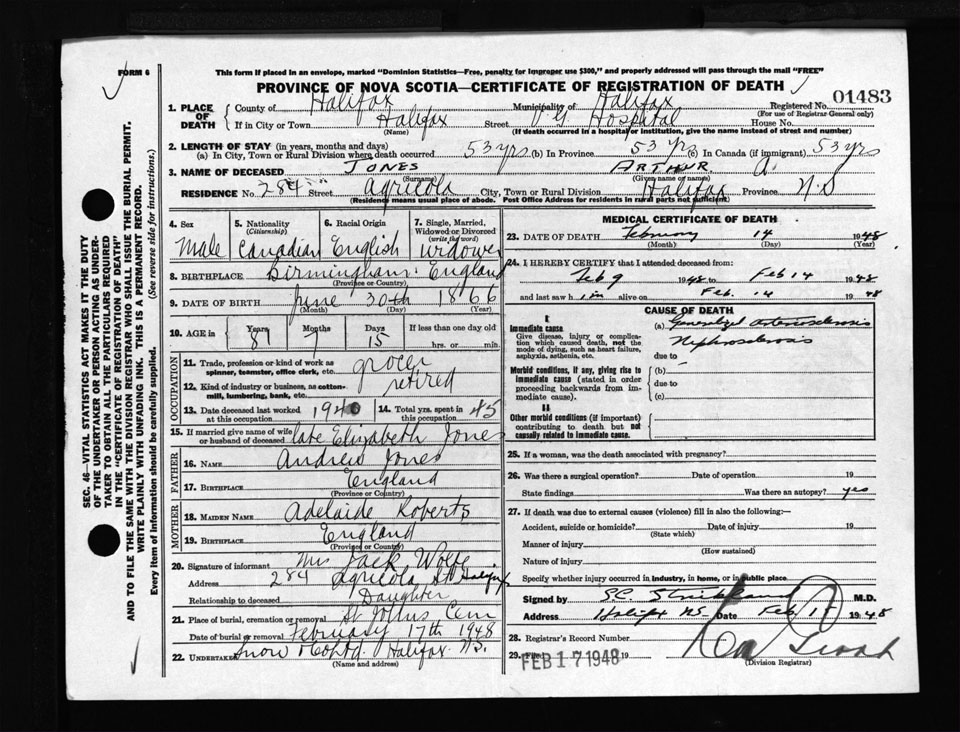 FORM 6
This form if placed in an envelope, marked "Dominion Statistics—Free, penalty for improper use $300," and properly addressed will pass through the mail "FREE"
PROVINCE OF NOVA SCOTIA—CERTIFICATE OF REGISTRATION OF DEATH
SEC. 46—VITAL STATISTICS ACT MAKES IT THE DUTY
OF THE UNDERTAKER OR PERSON ACTING AS UNDER-
TAKER TO OBTAIN ALL THE PARTICULARS REQUIRED
IN THE "CERTIFICATE OF REGISTRATION OF DEATH"
AND TO FILE THE SAME WITH THE DIVISION REGISTRAR WHO SHALL ISSUE THE BURIAL PERMIT.
WRITE PLAINLY WITH UNFADING INK. THIS IS A PERMANENT RECORD.
Every item of information should be carefully supplied. (See reverse side for instructions.)
1. PLACE OF DEATH
County of Halifax Municipality of Halifax Registered No. 01483
(For use of Registrar-General only)
If in City or Town Halifax Street V G Hospital House No.
(Name) (If death occurred in a hospital or institution, give the name instead of street and number)
2. LENGTH OF STAY (in years, months and days)
(a) In City, Town or Rural Division where death occurred 53 yrs (b) In Province 53 yrs (c) In Canada (if immigrant) 53 yrs
3. NAME OF DECEASED JONES ARTHUR A.
(Surname) (Given name or names)
RESIDENCE No. 284 Street Agricola City, Town or Rural Division Halifax Province N.S
(Residence means usual place of abode. Post Office Address for residents in rural parts not sufficient)
4. Sex
Male
5. Nationality
(Citizenship)
Canadian
6. Racial Origin
English
7. Single, Married,
Widowed or Divorced
(write the word)
Widower
8. BIRTHPLACE Birmingham England
(Province or Country)
9. DATE OF BIRTH June 30th 1866
(Month) (Day) (Year)
10. AGE in
Years Months Days If less than one day old
81 7 15 hrs. or min.
OCCUPATION
11. Trade, profession or kind of work as
spinner, teamster, office clerk, etc. grocer
12. Kind of industry or business, as cotton-
mill, lumbering, bank, etc. retired
13. Date deceased last worked
at this occupation 1940
14. Total yrs. spent in
this occupation 45
15. If married give name of wife
or husband of deceased late Elizabeth Jones
FATHER
16. NAME Andrew Jones
17. BIRTHPLACE England
(Province or Country)
MOTHER
18. MAIDEN NAME Adelaide Roberts
19. BIRTHPLACE England
(Province or Country)
20. Signature of informant Mrs Jack Wolfe
Address 284 Agricola St Halifax
Relationship to deceased Daughter
21. Place of burial, cremation or removal St Johns Cem
Date of burial or removal February 17th 1948
22. UNDERTAKER Snow & Co Ltd. Halifax N.S.
(Name and address)
MEDICAL CERTIFICATE OF DEATH
23. DATE OF DEATH February 14 1948
(Month) (Day) (Year)
24. I HEREBY CERTIFY that I attended deceased from:
Feb 9 1948 to Feb 14 1948
and last saw him alive on Feb. 14 1948
CAUSE OF DEATH
I
Immediate cause
Give disease, injury or complica-
tion which caused death, not the
mode of dying, such as heart failure,
asphyxia, asthenia, etc.
(a) Generalized arteriosclerosis
Nephrosclerosis
due to
Morbid conditions, if any, giving rise to
immediate cause (stated in order
proceeding backwards from im-
mediate cause).
(b)
due to
(c)
II
Other morbid conditions (if important)
contributing to death but not
causally related to immediate cause.
25. If a woman, was the death associated with pregnancy?
26. Was there a surgical operation? Date of operation 19
State findings Was there an autopsy? yes
27. If death was due to external causes (violence) fill in also the following:—
Accident, suicide or homicide? Date of injury 19
(State which)
Manner of injury
(How sustained)
Nature of injury
Specify whether injury occurred in industry, in home, or in public place
Signed by S.C. Strickland M.D.
Address Halifax N.S. Date Feb 1 1948
28. Registrar's Record Number
29. Filed FEB 17 1948 19
(Division Registrar)